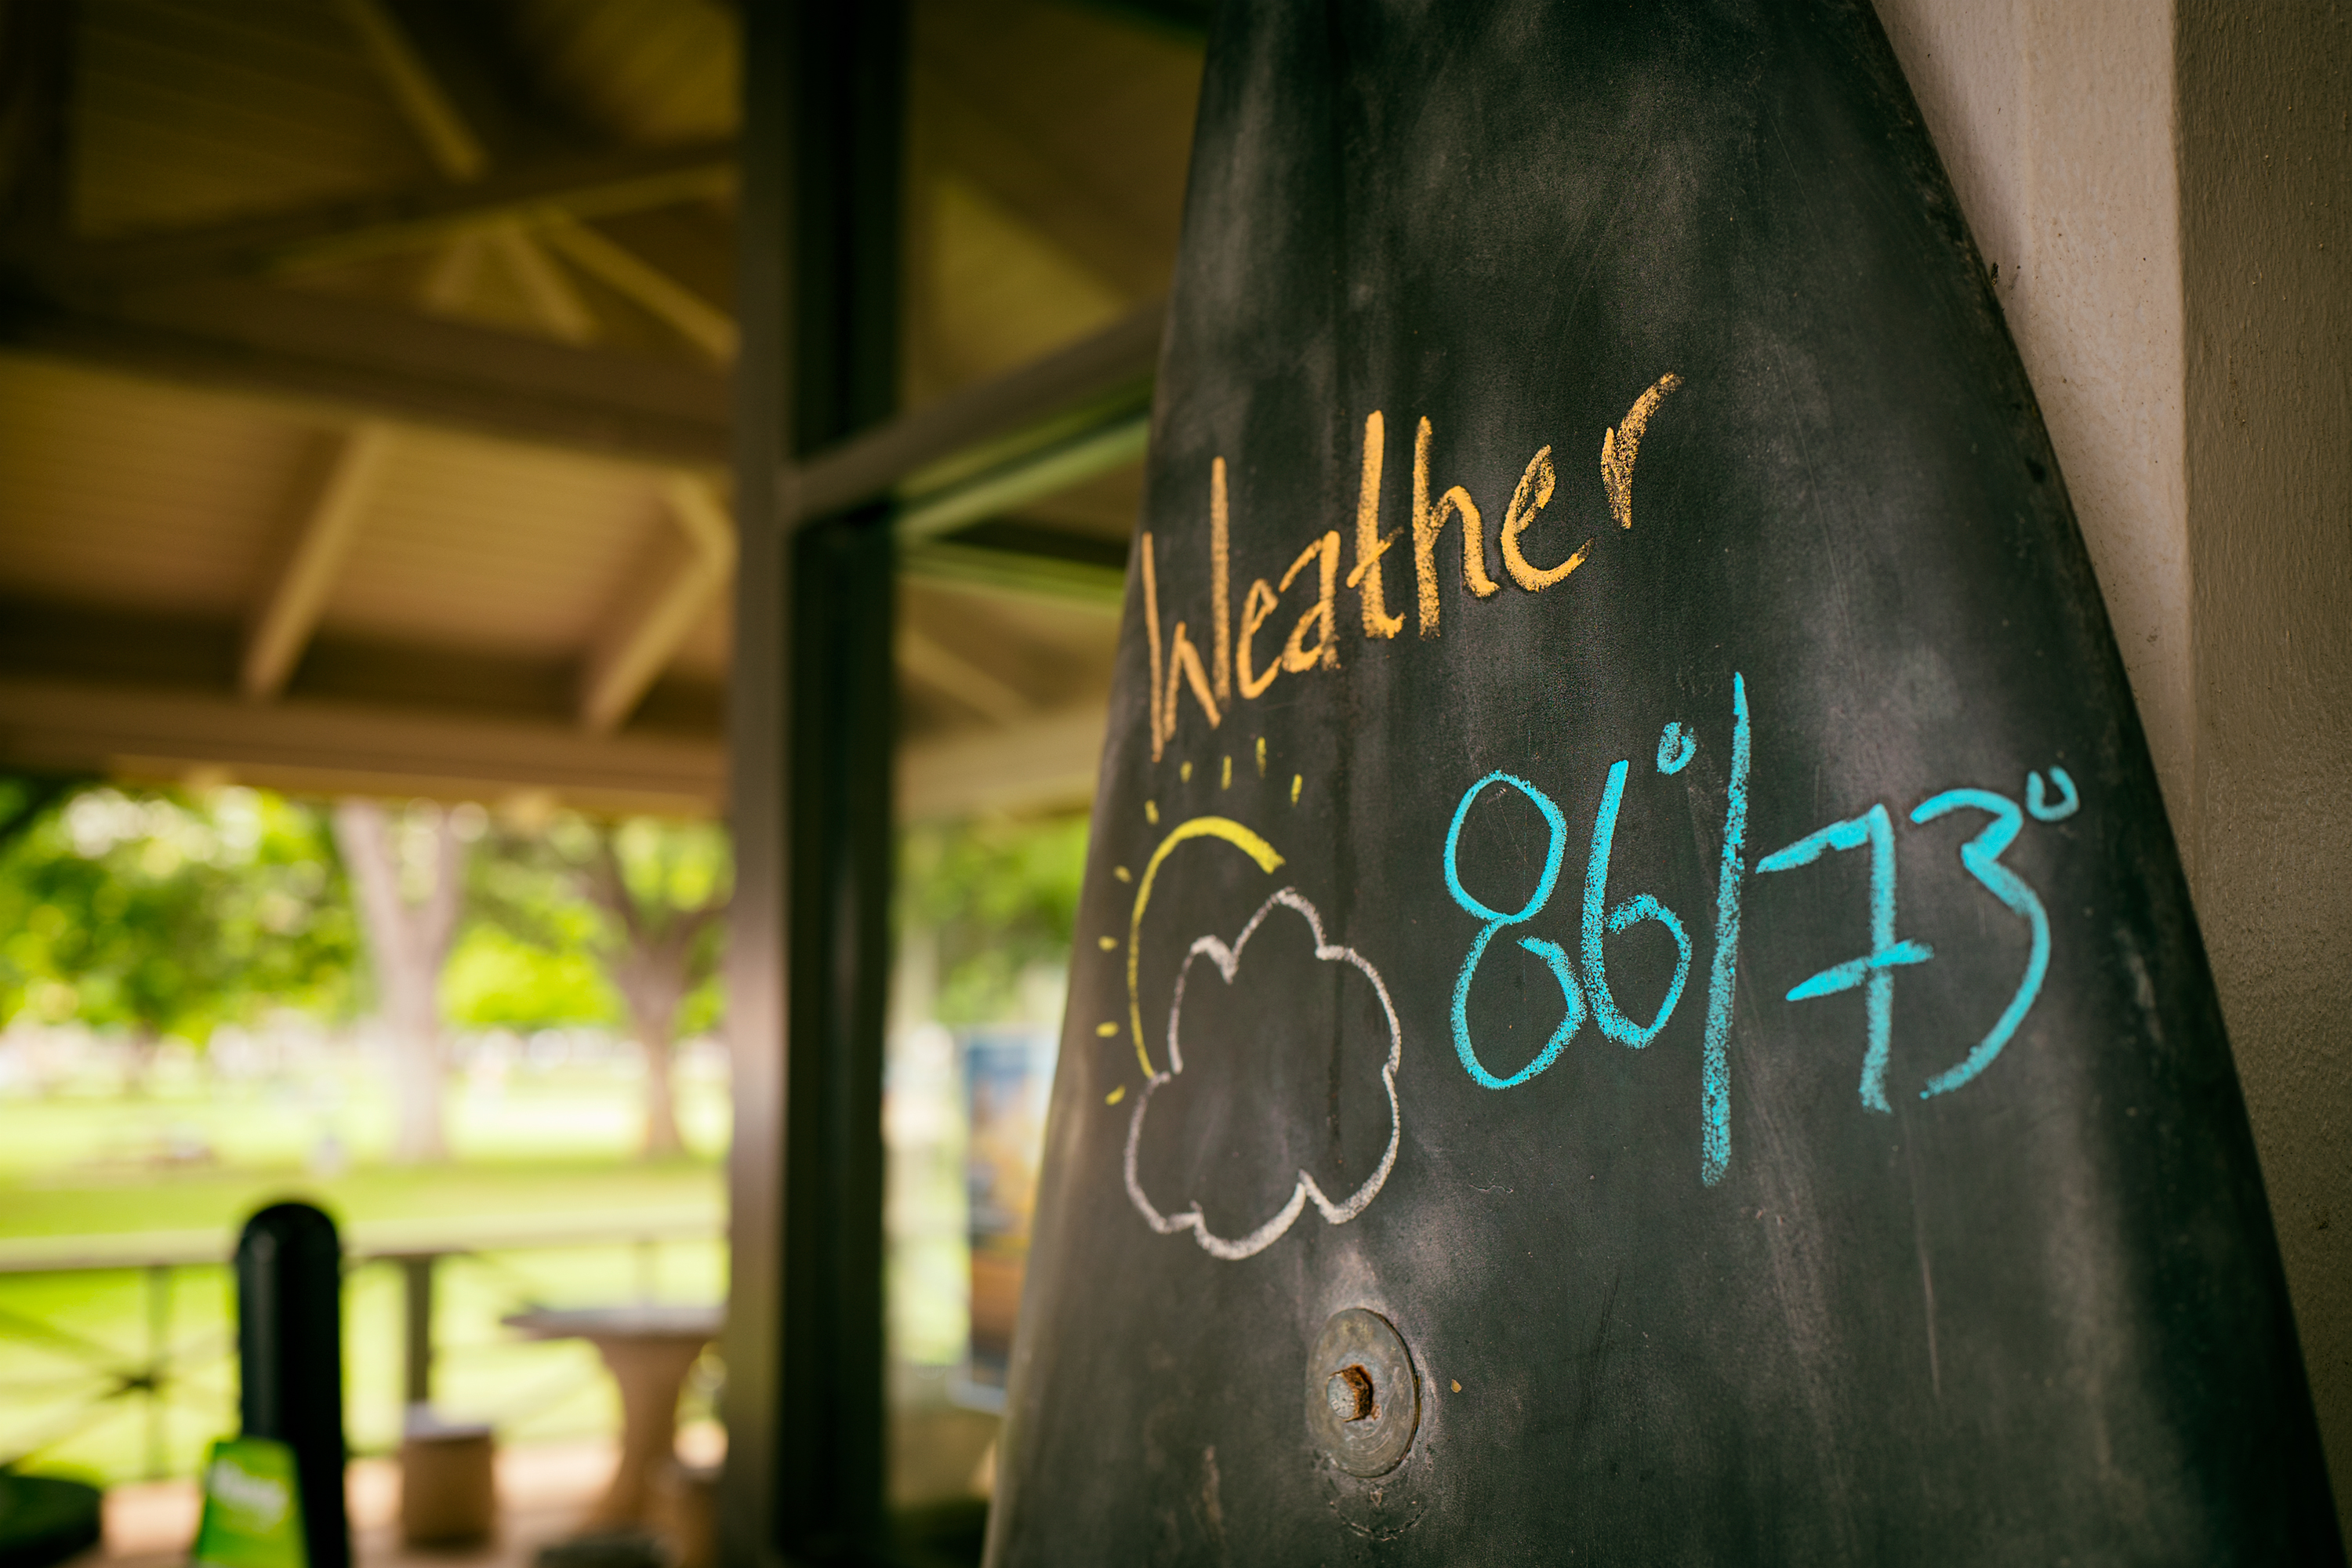 Weather
86°/73°